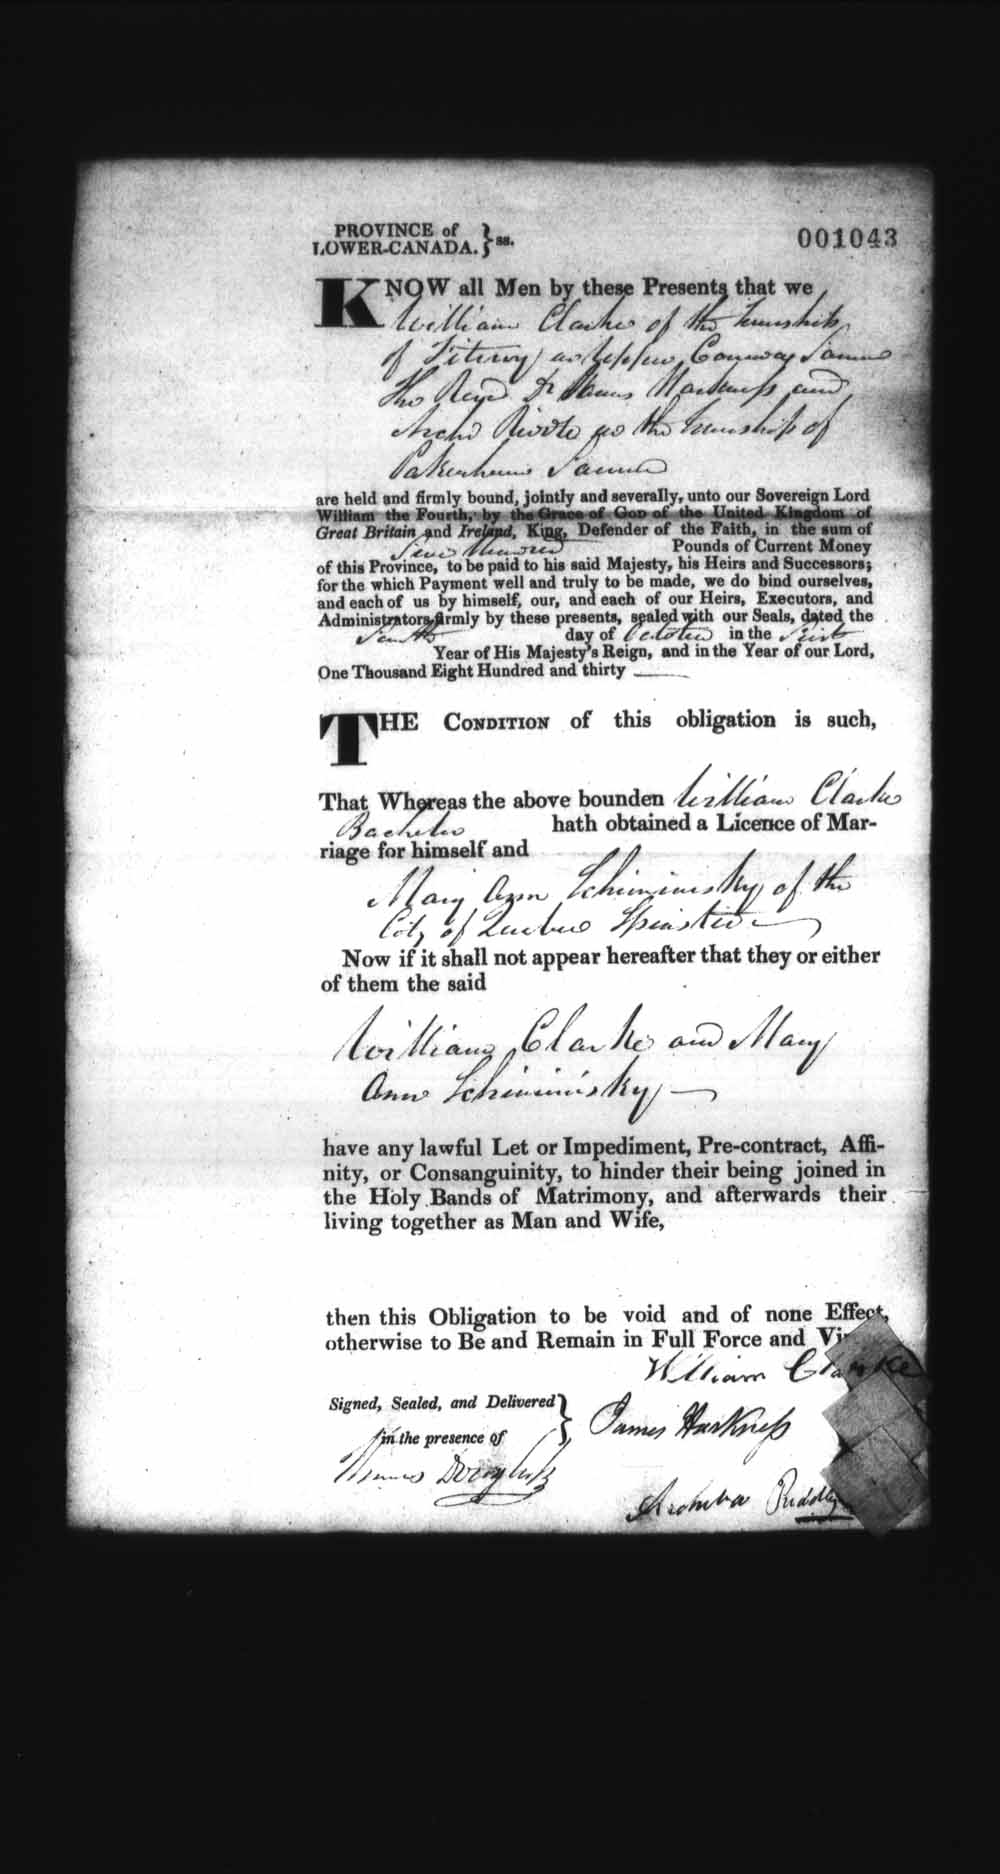 PROVINCE of
LOWER-CANADA. } ss.
001043
KNOW all Men by these Presents that we
William Clarke of the Township
of Fitzroy
The Revd Dr James Harkness and
Township of
are held and firmly bound, jointly and severally, unto our Sovereign Lord
William the Fourth, by the Grace of GOD of the United Kingdom of
Great Britain and Ireland, King, Defender of the Faith, in the sum of
Pounds of Current Money
of this Province, to be paid to his said Majesty, his Heirs and Successors;
for the which Payment well and truly to be made, we do bind ourselves,
and each of us by himself, our, and each of our Heirs, Executors, and
Administrators, firmly by these presents, sealed with our Seals, dated the
day of October in the First
Year of His Majesty's Reign, and in the Year of our Lord,
One Thousand Eight Hundred and thirty
THE CONDITION of this obligation is such,
That Whereas the above bounden William Clarke
Bachelor hath obtained a Licence of Mar-
riage for himself and
Mary Ann Schiminsky of the
City of Quebec Spinster
Now if it shall not appear hereafter that they or either
of them the said
William Clarke and Mary
Ann Schiminsky
have any lawful Let or Impediment, Pre-contract, Affi-
nity, or Consanguinity, to hinder their being joined in
the Holy Bands of Matrimony, and afterwards their
living together as Man and Wife,
then this Obligation to be void and of none Effect,
otherwise to Be and Remain in Full Force and
William Clarke
Signed, Sealed, and Delivered }
James Harkness
in the presence of